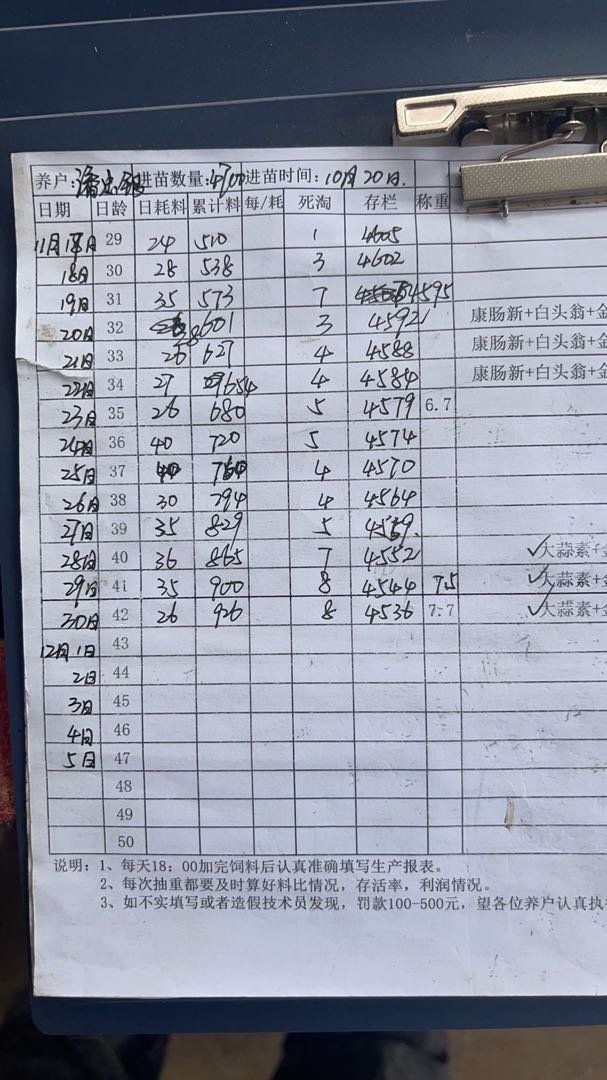 养户: 进苗数量:4700 进苗时间: 10月20日.
日期 日龄 日耗料 累计料 每/耗 死淘 存栏 称重
11月17日 29 24 510 1 4605
18日 30 28 538 3 4602
19日 31 35 573 7 4595
20日 32 28 601 3 4592 康肠新+白头翁+金
21日 33 26 627 4 4588 康肠新+白头翁+金
22日 34 27 654 4 4584 康肠新+白头翁+金
23日 35 26 680 5 4579 6.7
24日 36 40 720 5 4574
25日 37 40 764 4 4570
26日 38 30 794 4 4564
27日 39 35 829 5 4559.
28日 40 36 865 7 4552 ✓大蒜素+金
29日 41 35 900 8 4544 7.5 ✓大蒜素+金
30日 42 26 926 8 4536 7.7 ✓大蒜素+金
12月1日 43
2日 44
3日 45
4日 46
5日 47
48
49
50
说明: 1、每天18:00加完饲料后认真准确填写生产报表。
2、每次抽重都要及时算好料比情况，存活率，利润情况。
3、如不实填写或者造假技术员发现，罚款100-500元，望各位养户认真执